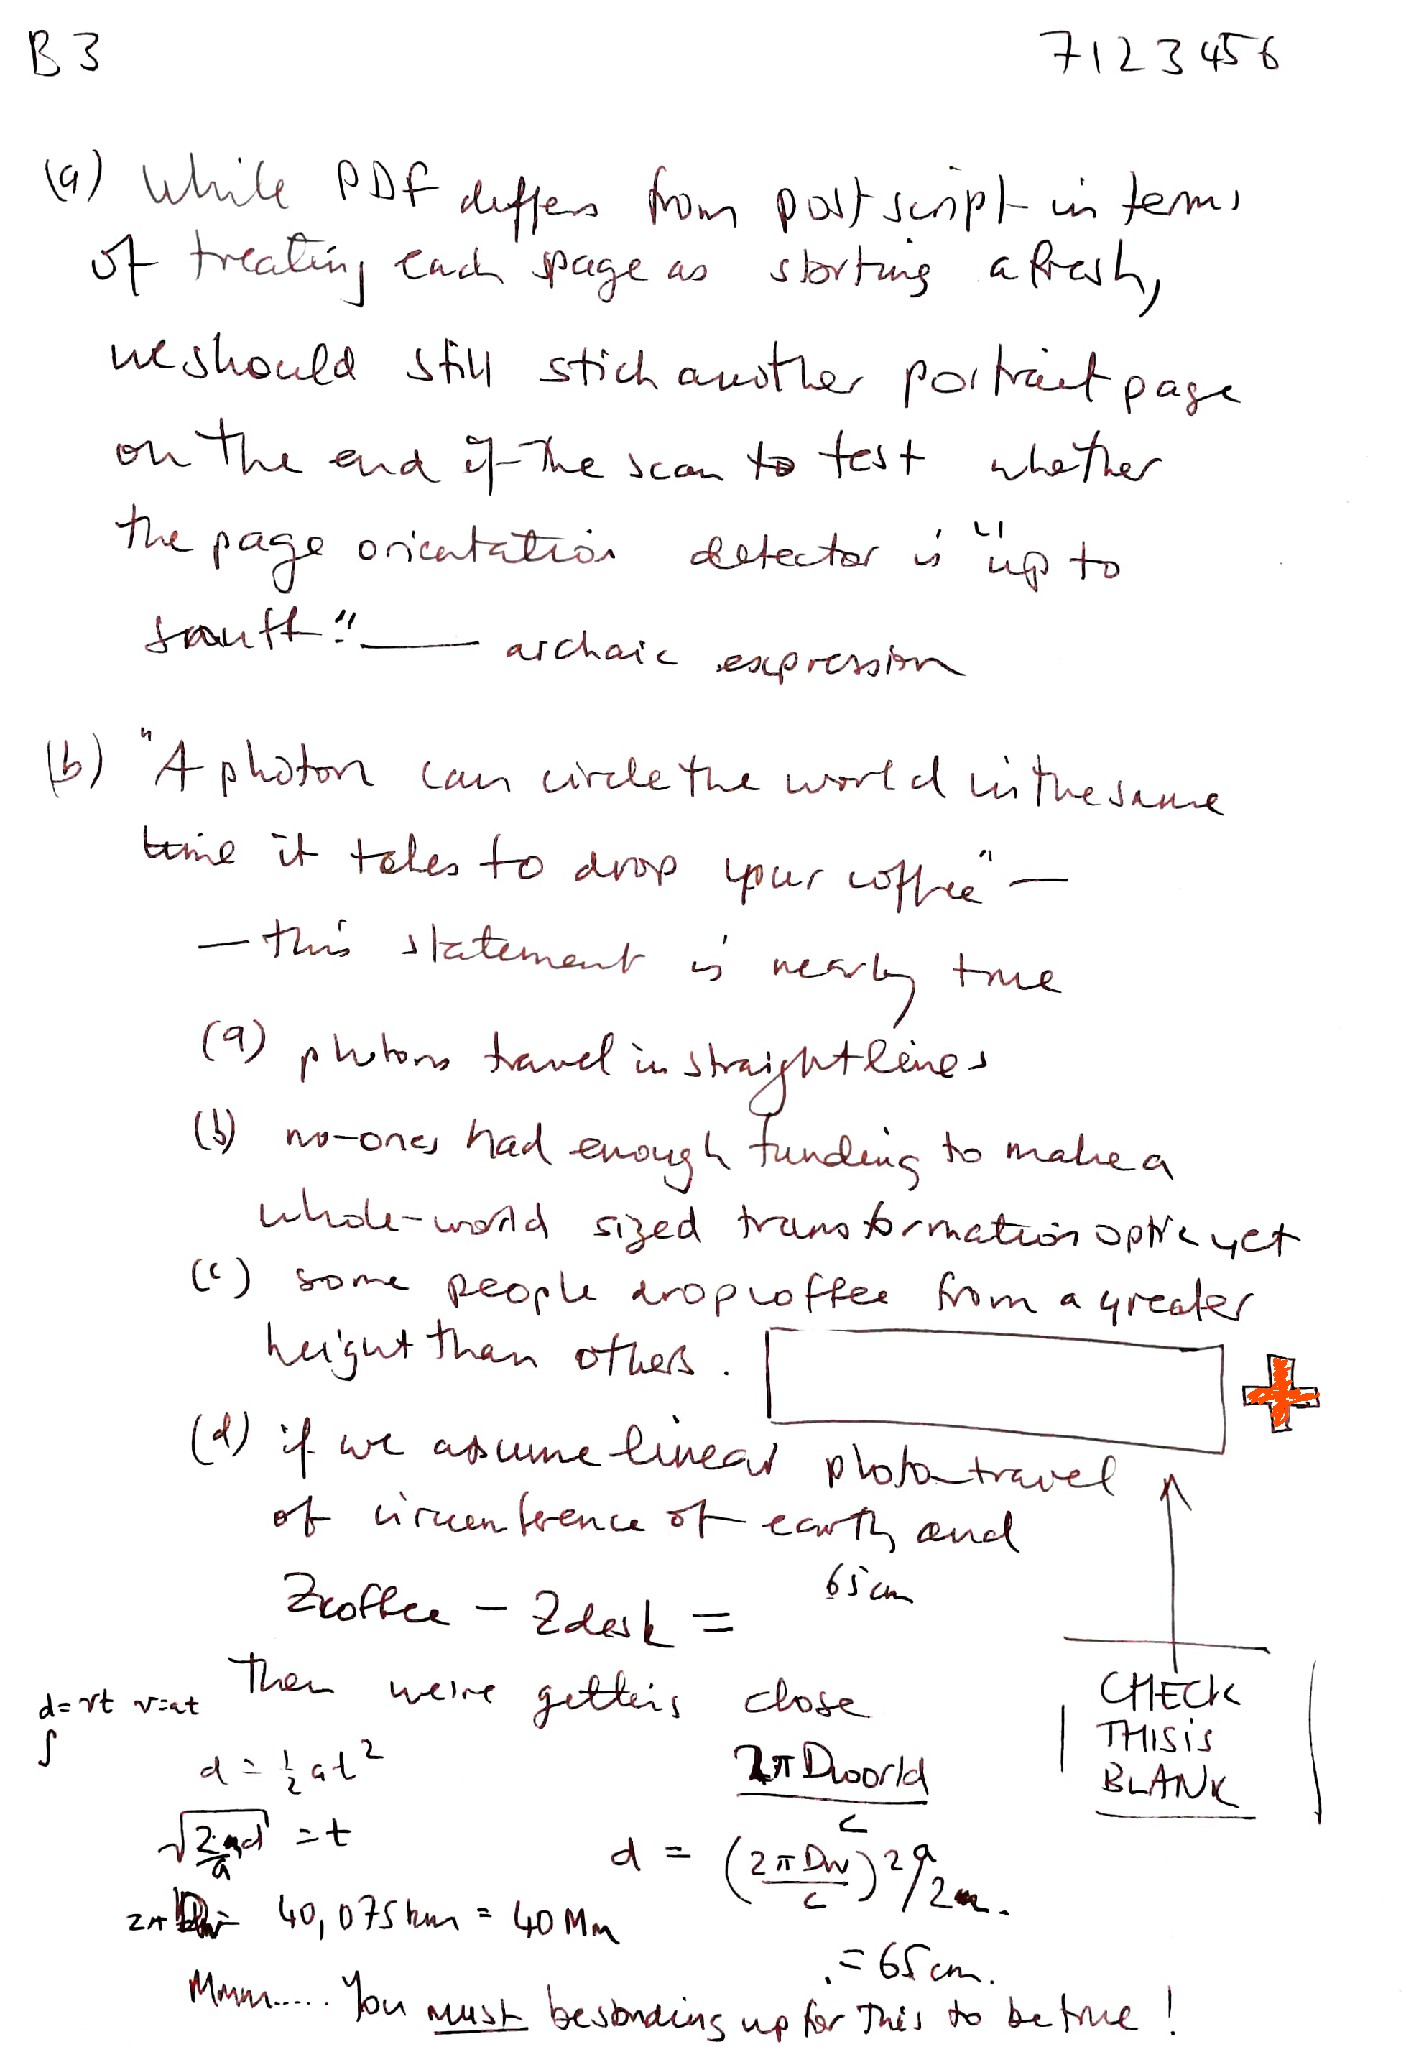 B3
7123456
(a) While PDF differs from postscript in terms
of treating each page as starting afresh,
we should still stich another portrait page
on the end of the scan to test whether
the page orientation detector is "up to
" — archaic expression
(b) "A photon can circle the world in the same
time it takes to drop your coffee" —
— this statement is nearly true
(a) photons travel in straight lines
(b) no-ones had enough funding to make a
whole-world sized transformation optic yet
(c) some people drop coffee from a greater
height than others.
(d) if we assume linear photon travel
of circumference of earth and
Zcoffee - Zdesk = 65cm
Then we're getting close
CHECK
THIS IS
BLANK
d=vt v=at
∫
d = ½at²
√2d/a = t
2πDworld/c
d = (2πDw/c)² a/2
40,075km = 40Mm
= 65cm.
Mmm..... You must be standing up for this to be true!